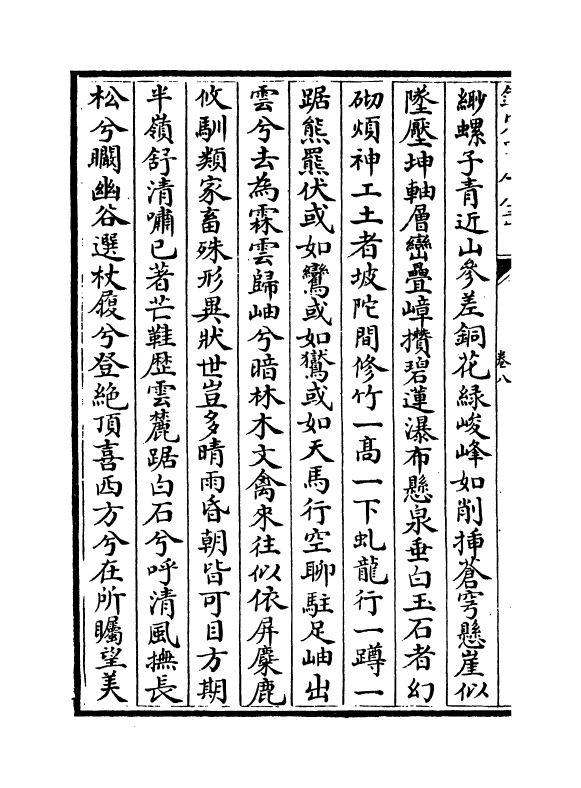 緲螺子青近山參差銅花緑峻峰如削揷蒼穹懸崖似
墜壓坤軸層巒疊嶂攢碧蓮瀑布懸泉垂白玉石者幻
砌煩神工土者坡陀間修竹一髙一下虬龍行一蹲一
踞熊羆伏或如鸞或如鷟或如天馬行空聊駐足岫出
雲兮去為霖雲歸岫兮暗林木文禽來往似依屏麋鹿
攸馴類家畜殊形異狀世豈多晴雨昏朝皆可目方期
半嶺舒清嘯已著芒鞋歴雲麓踞白石兮呼清風撫長
松兮瞰幽谷選杖履兮登絶頂喜西方兮在所矚望美
卷八